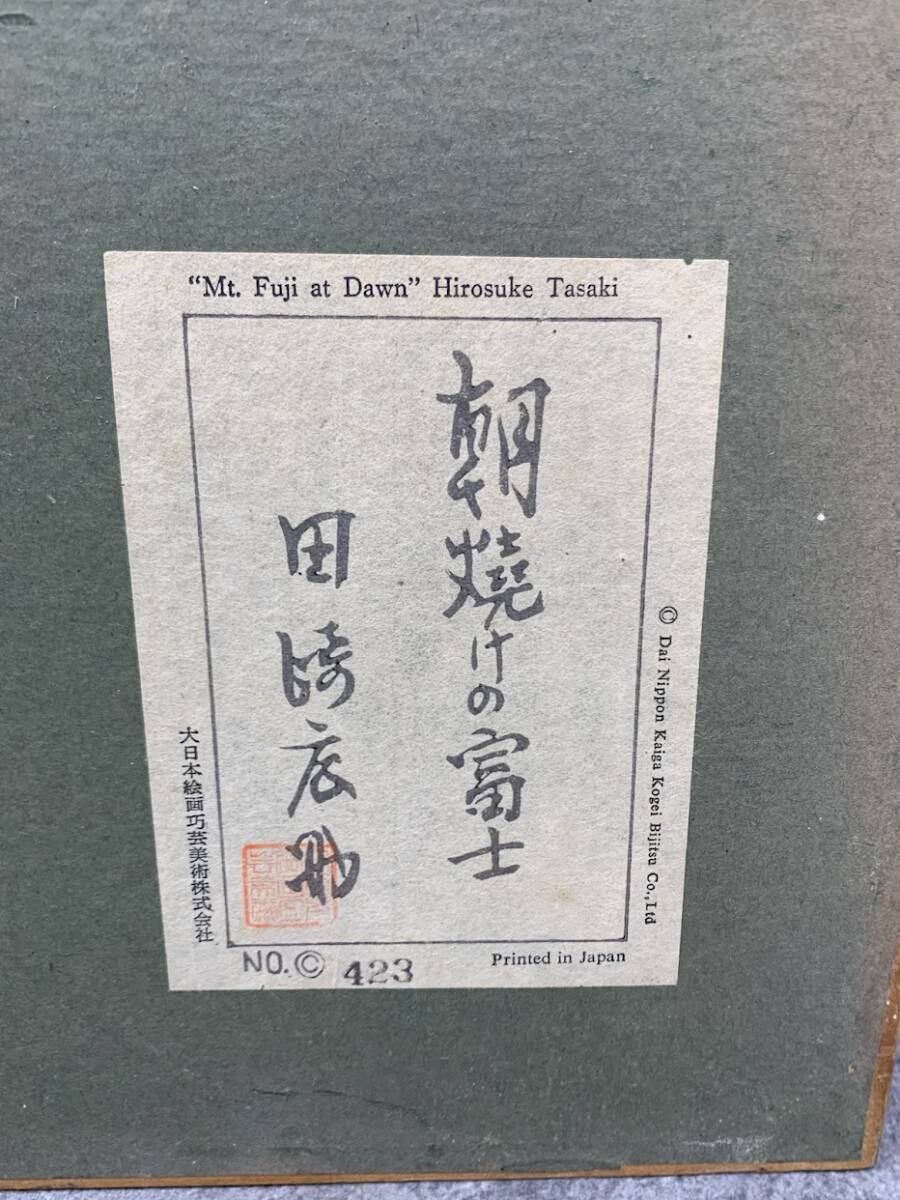 “Mt. Fuji at Dawn” Hirosuke Tasaki
朝燒けの富士
田崎広助
© Dai Nippon Kaiga Kogei Bijitsu Co., Ltd
大日本絵画巧芸美術株式会社
NO.© 423
Printed in Japan